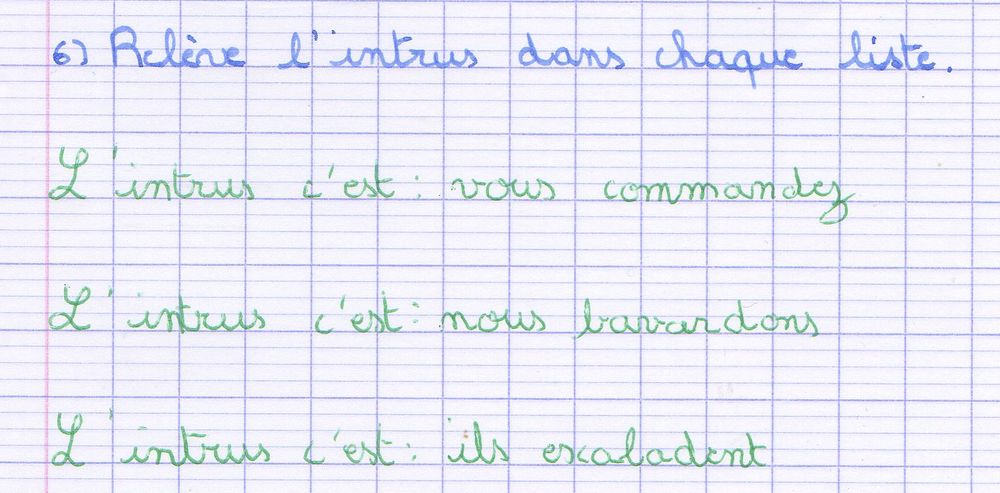 6) Relève l'intrus dans chaque liste.
L'intrus c'est : vous commandez
L'intrus c'est : nous bavardons
L'intrus c'est : ils escaladent